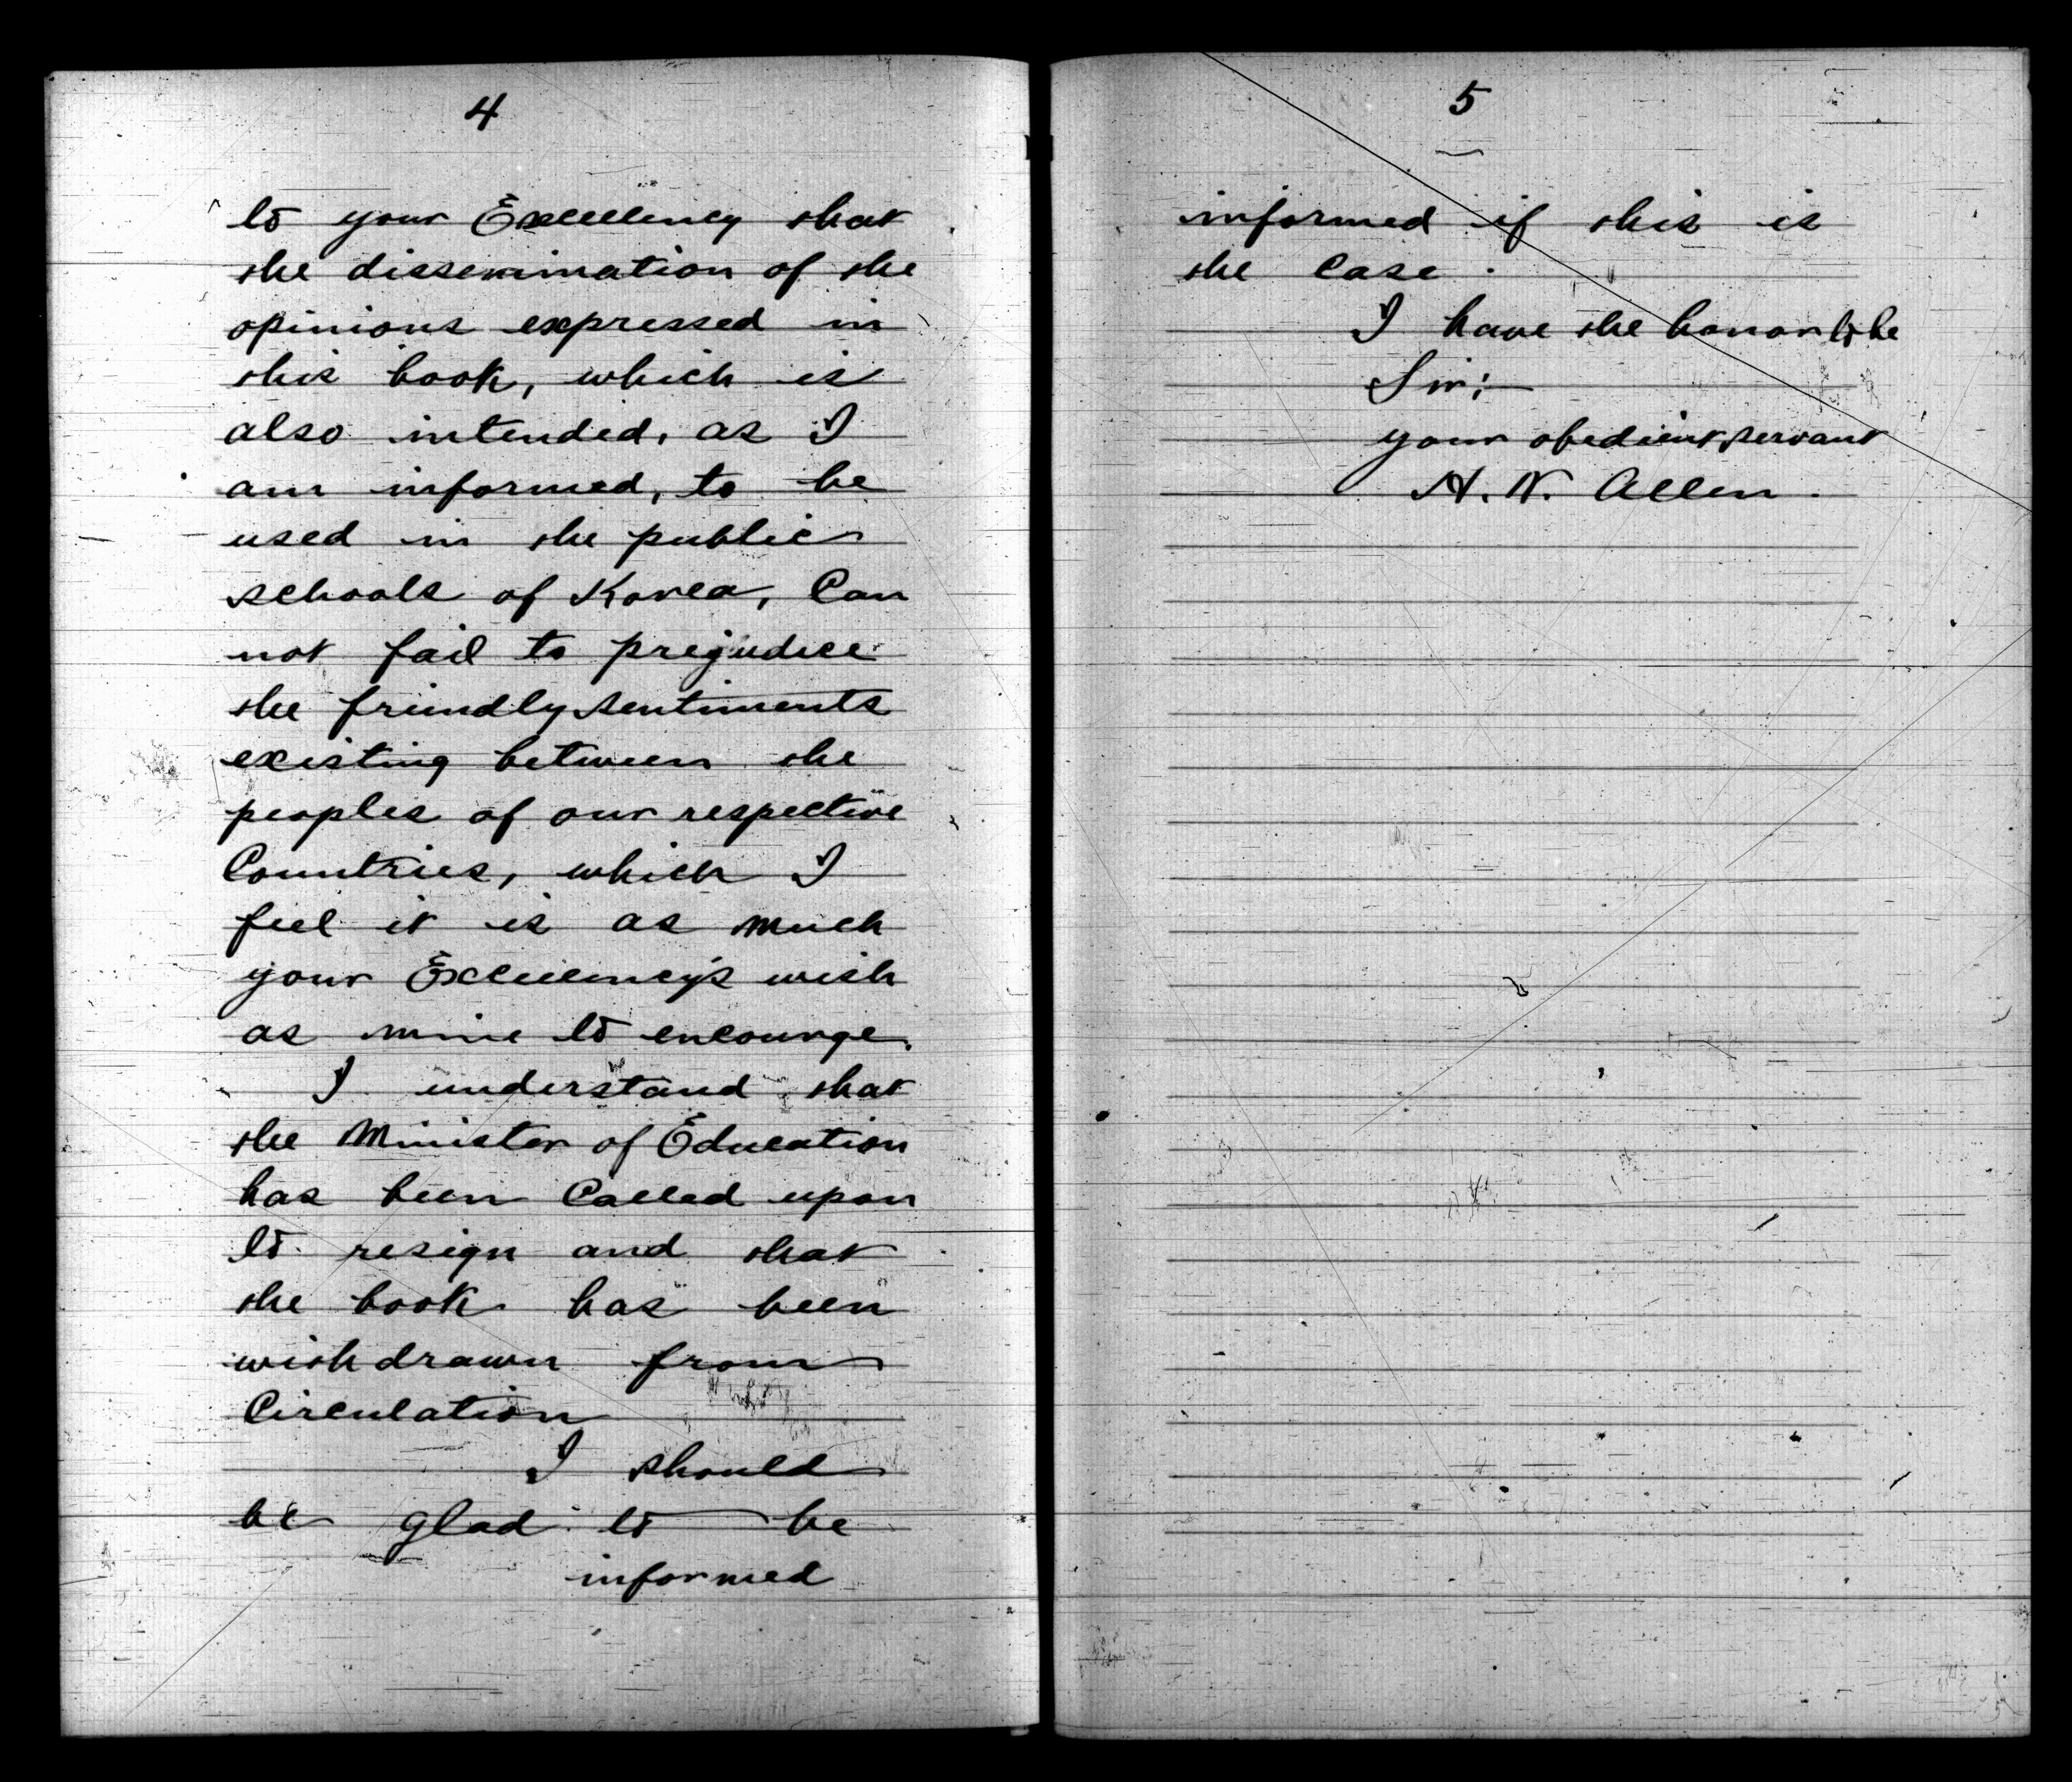 4
to your Excellency that
the dissemination of the
opinions expressed in
this book, which is
also intended, as I
am informed, to be
used in the public
schools of Korea, Can
not fail to prejudice
the friendly sentiments
existing between the
peoples of our respective
Countries, which I
feel it is as much
your Excellency's wish
as mine to encourge.
I understand that
the Minister of Education
has been Called upon
to resign and that
the book has been
withdrawn from
Circulation
I should
be glad to be
informed
5
informed if this is
the Case.
I have the honor to be
Sir:—
your obedient servant
H. N. Allen.